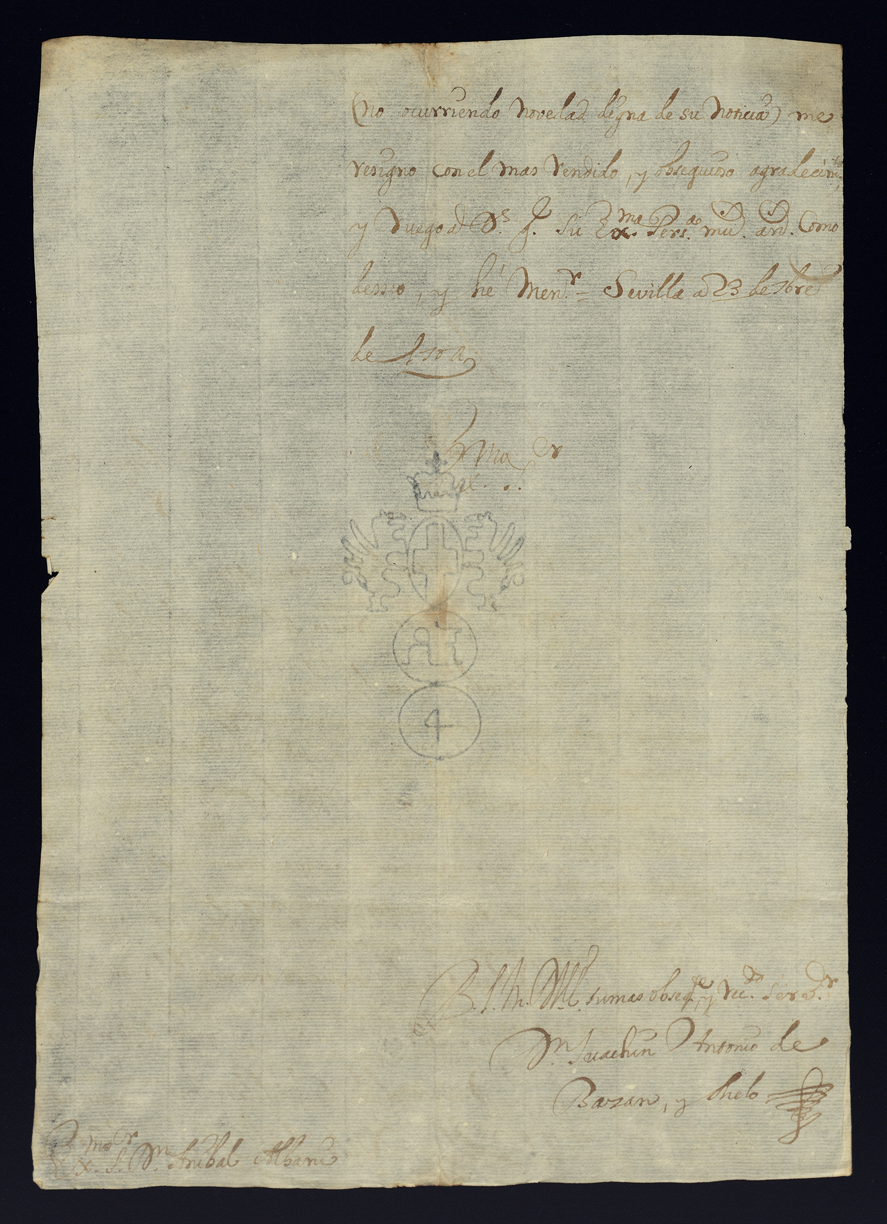 (no ocurriendo Novedad digna de su Noticia) me
resigno con el mas rendido, y obsequioso agradecim.to
y Ruego a D.s g.e su Ex.ma Pers.a mũ. añ. Como
desseo, y hé Men.r = Sevilla a 23 de 7bre
de
Ex.mo S.r
4
B. l. M. de V.E. su mas obseq.te y Ser.or
D.n Juachin Antonio de
Bazan, y Melo
Ex.mo S.r D.n Anibal Albani